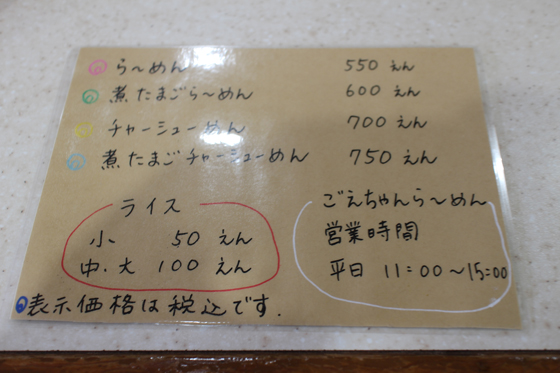 ら～めん 550 えん
煮たまごら～めん 600 えん
チャーシューめん 700 えん
煮たまごチャーシューめん 750 えん
ライス
小 50 えん
中.大 100 えん
ごえちゃんら～めん
営業時間
平日 11:00～15:00
表示価格は税込です.